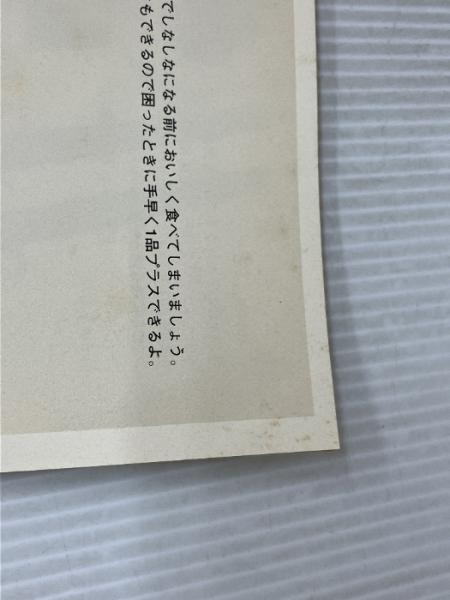 でしなしなになる前においしく食べてしまいましょう。
もできるので困ったときに手早く1品プラスできるよ。